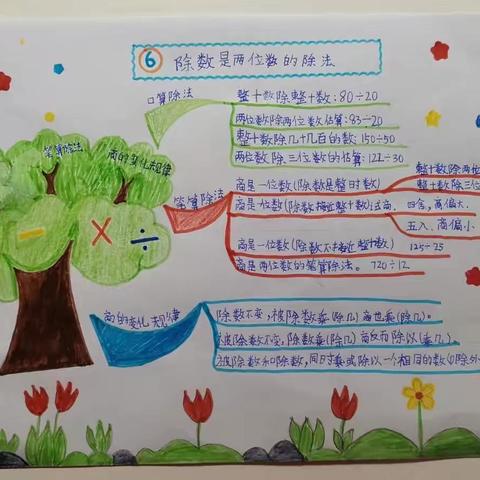 ⑥ 除数是两位数的除法
口算除法
整十数除整十数:80÷20
两位数除两位数估算:83÷20
整十数除几十几百的数:150÷50
两位数除三位数的估算:122÷30
笔算除法
商的变化规律
笔算除法
商是一位数(除数是整时数)
整十数除两位
整十数除三位
商是一位数(除数接近整十数)试商.
四舍,商偏大.
五入、商偏小
商是一位数(除数不接近整十数) 125÷25
商是两位数的笔算除法。 720÷12
商的变化规律
除数不变,被除数乘(除几)商也乘(除几)。
被除数不变,除数乘(除几)商反而除以(乘几)。
被除数和除数,同时乘或除以一个相同的数(0除外
− × ÷